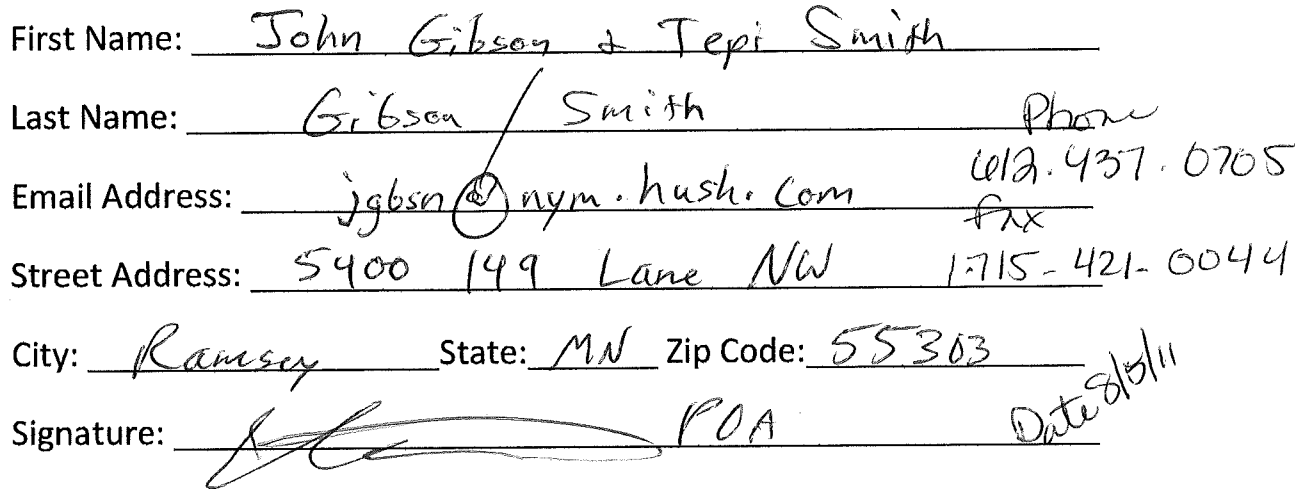 First Name: John Gibson & Tepi Smith
Last Name: Gibson / Smith
Phone
612.437.0705
Email Address: jgbsn@nym.hush.com
Fax
Street Address: 5400 149 Lane NW
1-715-421-0044
City: Ramsey State: MN Zip Code: 55303
Date 8/5/11
Signature: POA